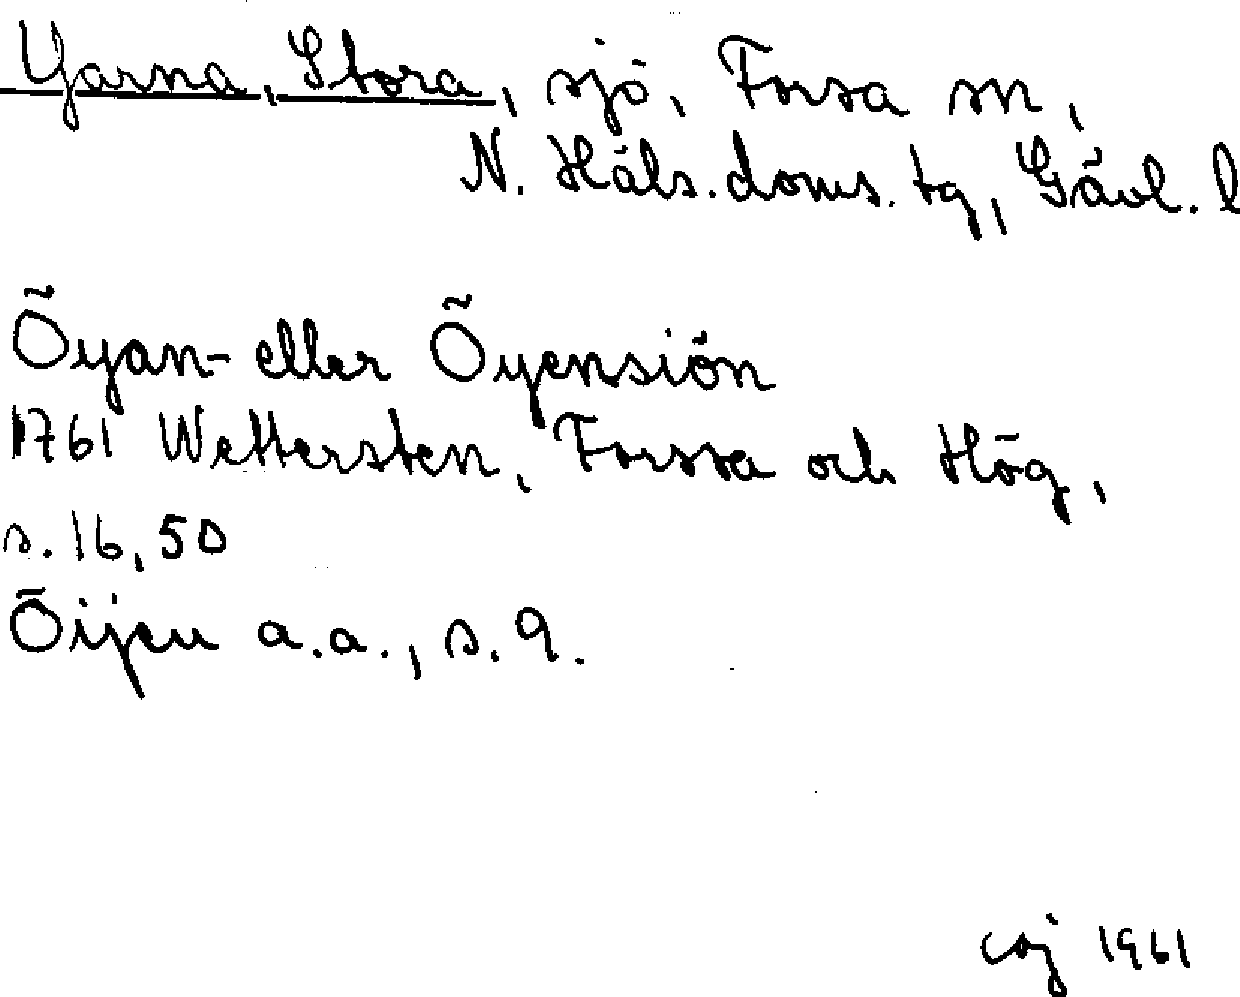 Yarna, Stora, sjö, Forsa sn,
N. Häls. doms. tg, Gävl. l
Öyan- eller Öyensiön
1761 Wettersten, Forssa och Hög,
s. 16, 50
Öijen a.a., s. 9.
1961